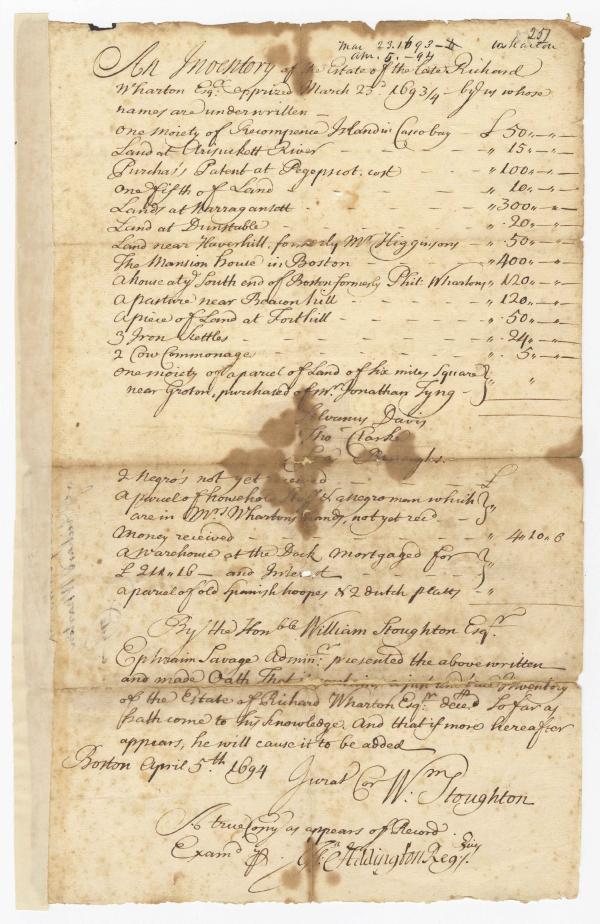 257
Mar 23. 1693-4 Wharton
Apr. 5. - 94
An Inventory of the Estate of the late Richard
Wharton Esqr. apprized March 23d 1693/4 - by us whose
names are underwritten -
one moiety of Recompence Island in Casco bay - £ 50 „ - „ -
Land at Arisickett River - - - „ 15 „ - „ -
Purchas's Patent at Pegepscot. cost - - „ 100 „ - „ -
one fifth of Land - - - - „ 10 „ - „ -
Lands at Narragansett - - - - „ 300 „ - „ -
Land at Dunstable - - - - „ 20 „ - „ -
Land near Haverhill, formerly Mr. Higginsons - „ 50 „ - „ -
The Mansion house in Boston - - - „ 400 „ - „ -
a house at ye South end of Boston formerly Phil: Whartons „ 120 „ - „ -
a pasture near Beacon hill - - - „ 120 „ - „ -
a piece of Land at Forthill - - - - „ 50 „ - „ -
3 Iron kettles - - - - - „ 24 „ - „ -
2 Cow Commonage - - - - „ 5 „ - „ -
one moiety of a parcel of Land of six miles square } „ „
near Groton, purchased of mr. Jonathan Tyng -
Sylvanus Davis
Tho: Clarke
Burroughs.
2 Negro's not yet received - - £
a parcel of household & a negro man which } „
are in Mrs. Whartons hands, not yet recd -
Money received - - - - - „ 4 „ 10 „ 6
a Warehouse at the Dock Mortgaged for } „
£ 211 „ 16 - and Interest - - -
a parcel of old Spanish hoopes & 2 dutch platts - „
By the Honble William Stoughton Esqr.
Ephraim Savage Adminr. presented the above written
and made Oath That it contains a just and true Inventory
of the Estate of Richard Wharton Esqr. deced So far as
hath come to his knowledge. And that if more hereafter
appears, he will cause it to be added
Boston April 5.th 1694
Jurat Cor Wm. Stoughton
A true Copy as appears of Record.
Examd. ₽ Isa: Addington Regr.